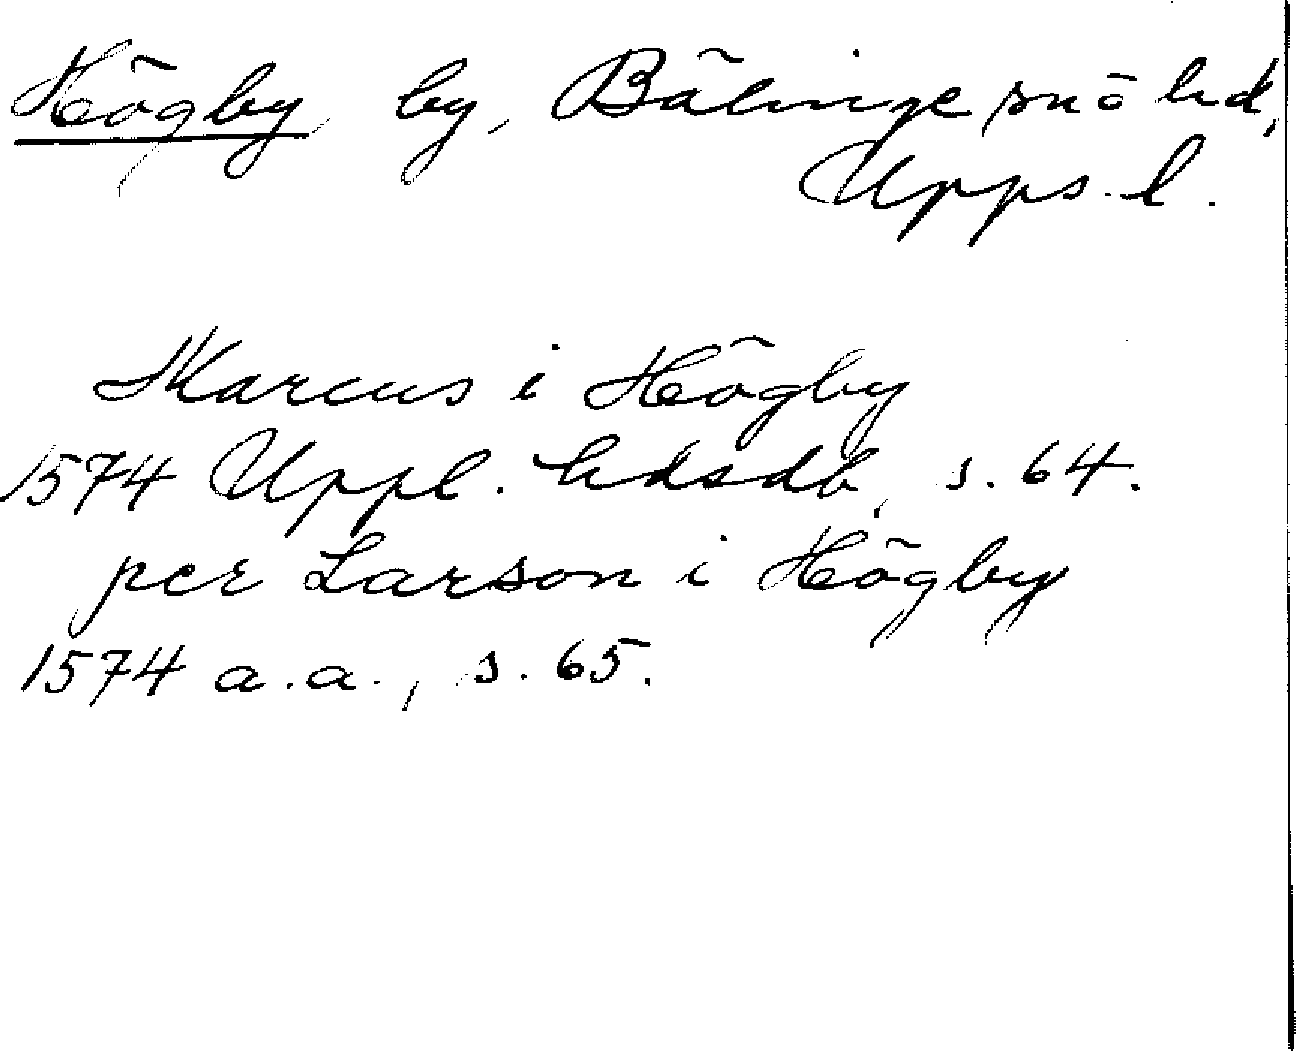 Högby, by, Bälinge snö hd,
Upps. l.
Marcus i Högby
1574 Uppl. hdsdb, s. 64.
per Larson i Högby
1574 a.a., s. 65.